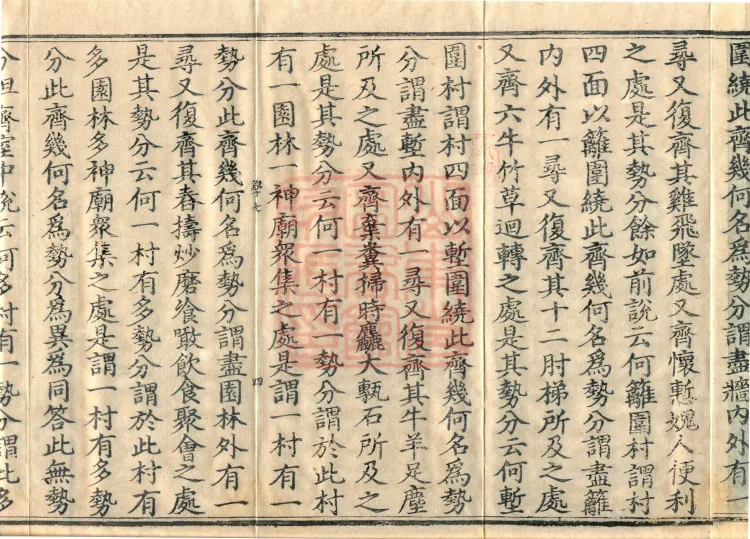 圍繞此齊幾何名爲勢分謂盡牆內外有一
尋又復齊其雞飛墜處又齊懷慙媿人便利
之處是其勢分餘如前說云何籬圍村謂村
四面以籬圍繞此齊幾何名爲勢分謂盡籬
內外有一尋又復齊其十二肘梯所及之處
又齊六牛竹草迴轉之處是其勢分云何塹
圍村謂村四面以塹圍繞此齊幾何名爲勢
分謂盡塹內外有一尋又復齊其牛羊足塵
所及之處又齊棄糞掃時麤大甎石所及之
處是其勢分云何一村有一勢分謂於此村
有一園林一神廟衆集之處是謂一村有一
勢分此齊幾何名爲勢分謂盡園林外有一
尋又復齊其舂擣炒磨飡噉飲食聚會之處
是其勢分云何一村有多勢分謂於此村有
多園林多神廟衆集之處是謂一村有多勢
分此齊幾何名爲勢分爲異爲同答此無勢
分但齊室中說云何多村有一勢分謂此多
七
四